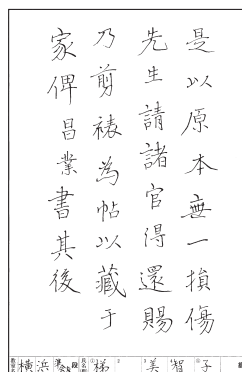 是以原本無一損傷
先生請諸官得還賜
乃剪裱為帖以藏于
家俾昌業書其後
横浜 準 段 梯 美智子